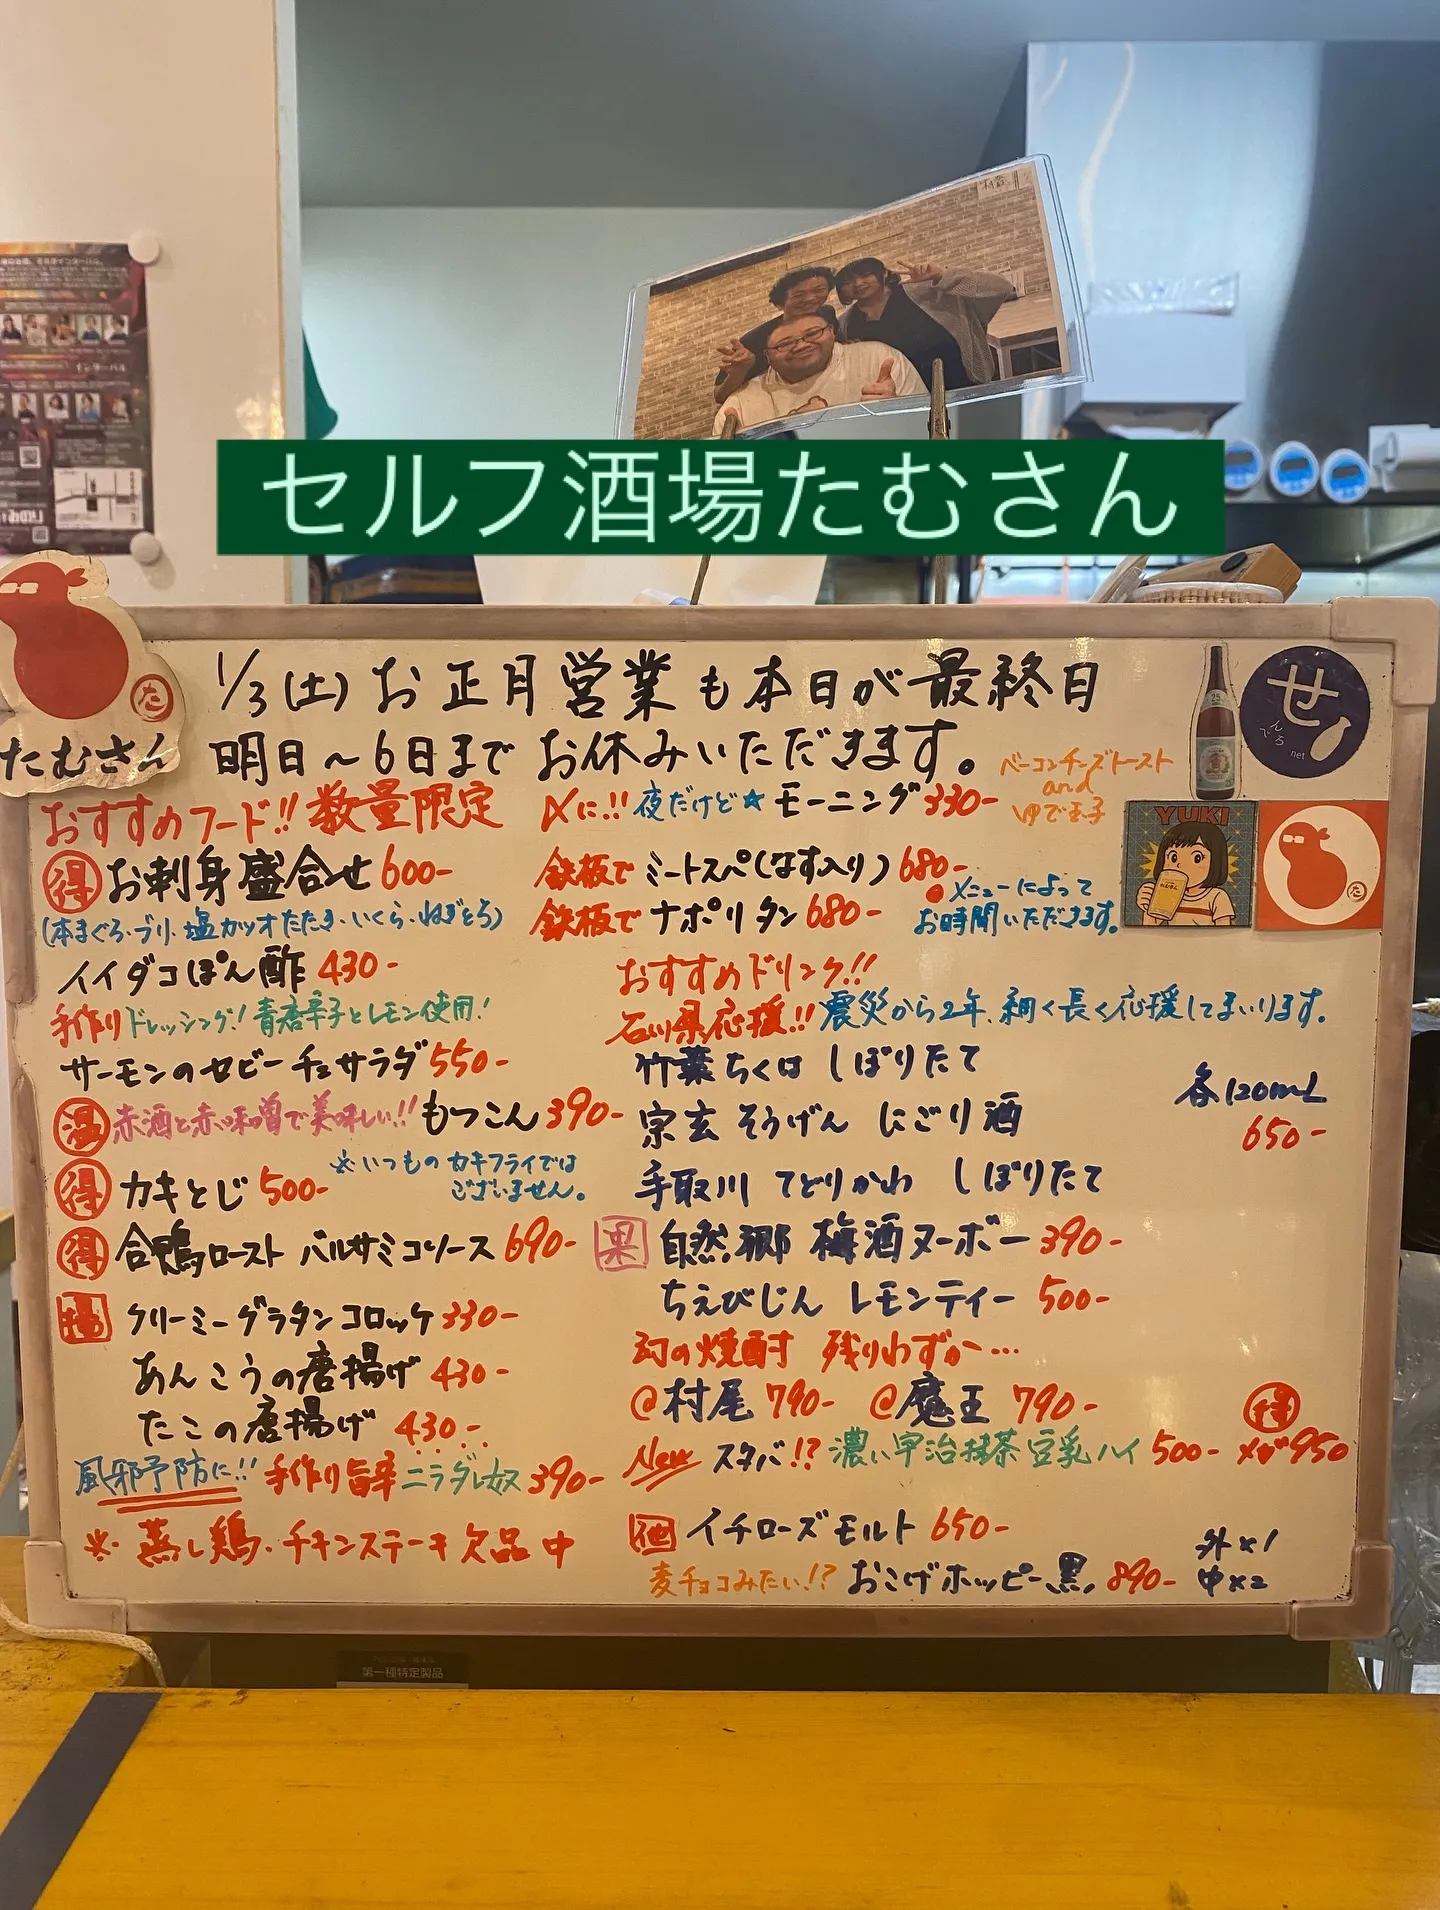 セルフ酒場たむさん
インターバル
たむさん
1/3(土) お正月営業も本日が最終日
明日〜6日までお休みいただきます。
せ
んべろ
net
YUKI
おすすめフード!! 数量限定
得 お刺身盛合せ 600-
(本まぐろ・ブリ・塩カツオたたき・いくら・ねぎとろ)
イイダコぽん酢 430-
手作りドレッシング! 青唐辛子とレモン使用!
サーモンのセビーチェサラダ 550-
温 赤酒と赤味噌で美味しい!! もつこん 390-
得 カキとじ 500- ※いつものカキフライでは
ございません。
得 合鴨ロースト バルサミコソース 690-
揚 クリーミーグラタンコロッケ 330-
あんこうの唐揚げ 430-
たこの唐揚げ 430-
風邪予防に!! 手作り旨辛ニラダレ奴 390-
※ 蒸し鶏・チキンステーキ欠品中
〆に!! 夜だけど★ モーニング 330-
ベーコンチーズトースト
and
ゆで玉子
鉄板で ミートスパ(なす入り) 680-
鉄板で ナポリタン 680-
メニューによって
お時間いただきます。
おすすめドリンク!!
石川県応援!! 震災から2年、細く長く応援してまいります。
竹葉 ちくは しぼりたて
宗玄 そうげん にごり酒
手取川 てどりがわ しぼりたて
各120mL
650-
果 自然郷 梅酒ヌーボー 390-
ちえびじん レモンティー 500-
幻の焼酎 残りわずか…
@村尾 790- @魔王 790-
New スタバ!? 濃い宇治抹茶豆乳ハイ 500- 得 メガ950
イチローズモルト 650-
麦チョコみたい!? おこげホッピー黒 890- 外×1
中×2
第一種特定製品